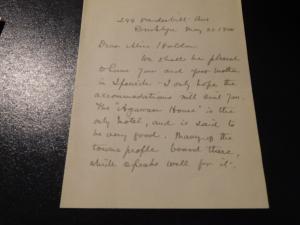 244 Vanderbilt Ave
Brooklyn May 22
Dear Miss
We shall be pleased
to have you and your mother
in Ipswich I only hope the
accommodations will suit you.
The "Agawam House" is the
only hotel, and is said to
be very good. Many of the
towns people board there,
which speaks well for it.